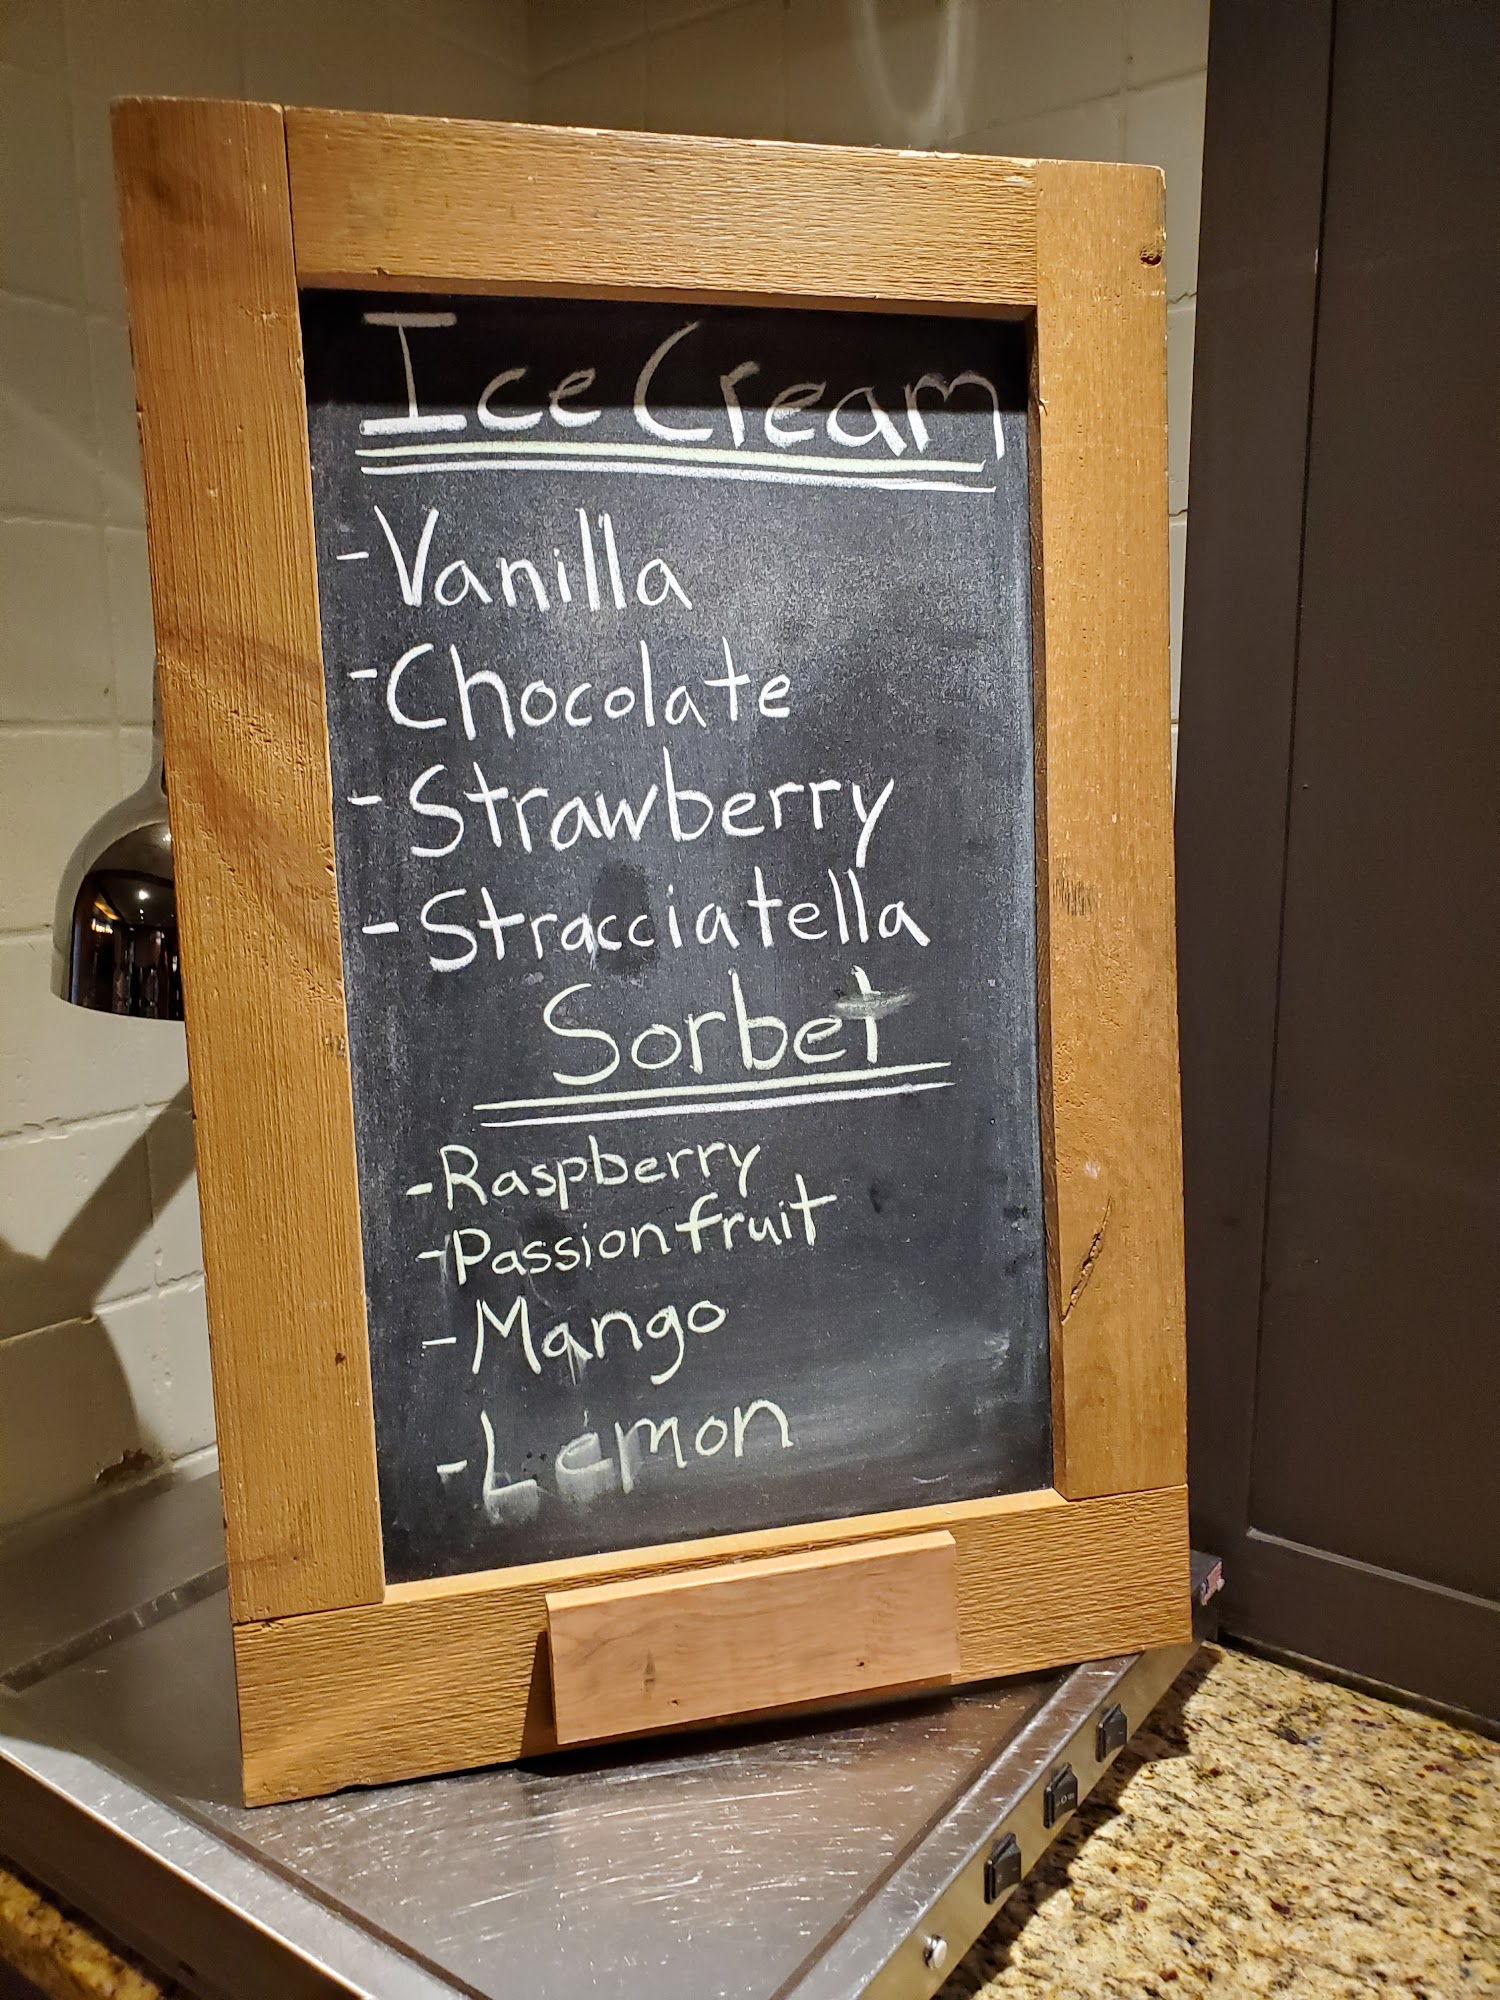 Ice Cream
-Vanilla
-Chocolate
-Strawberry
-Stracciatella
Sorbet
-Raspberry
-Passionfruit
-Mango
-Lemon